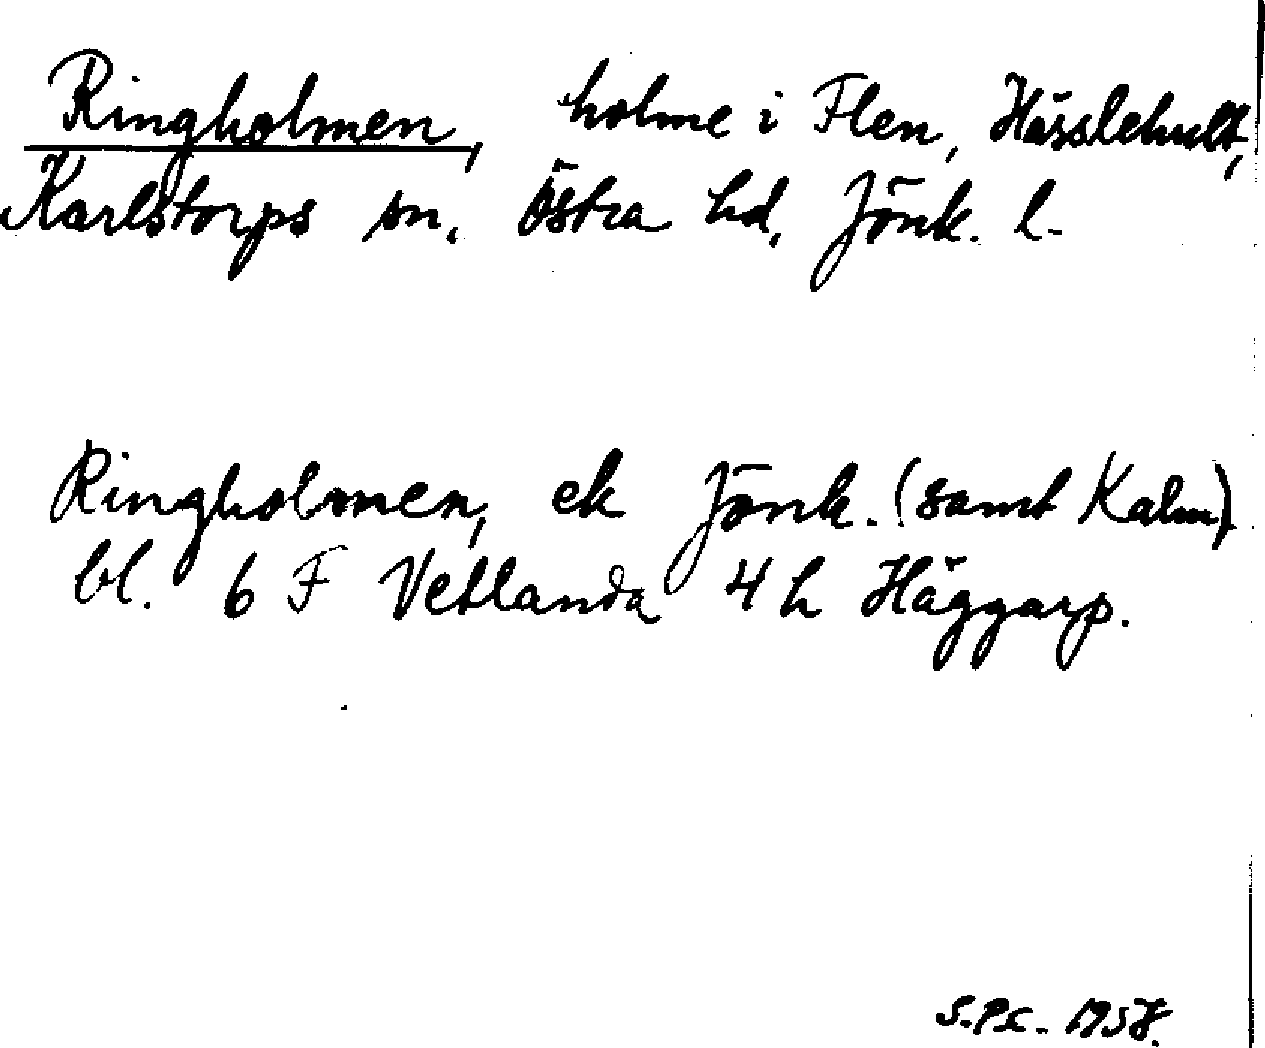 Ringholmen, holme i Flen, Hässlehult,
Karlstorps sn. Östra hd, Jönk. l.
Ringholmen, ek Jönk. (samt Kalm)
bl. 6 F Vetlanda 4 h Häggarp.
1958.